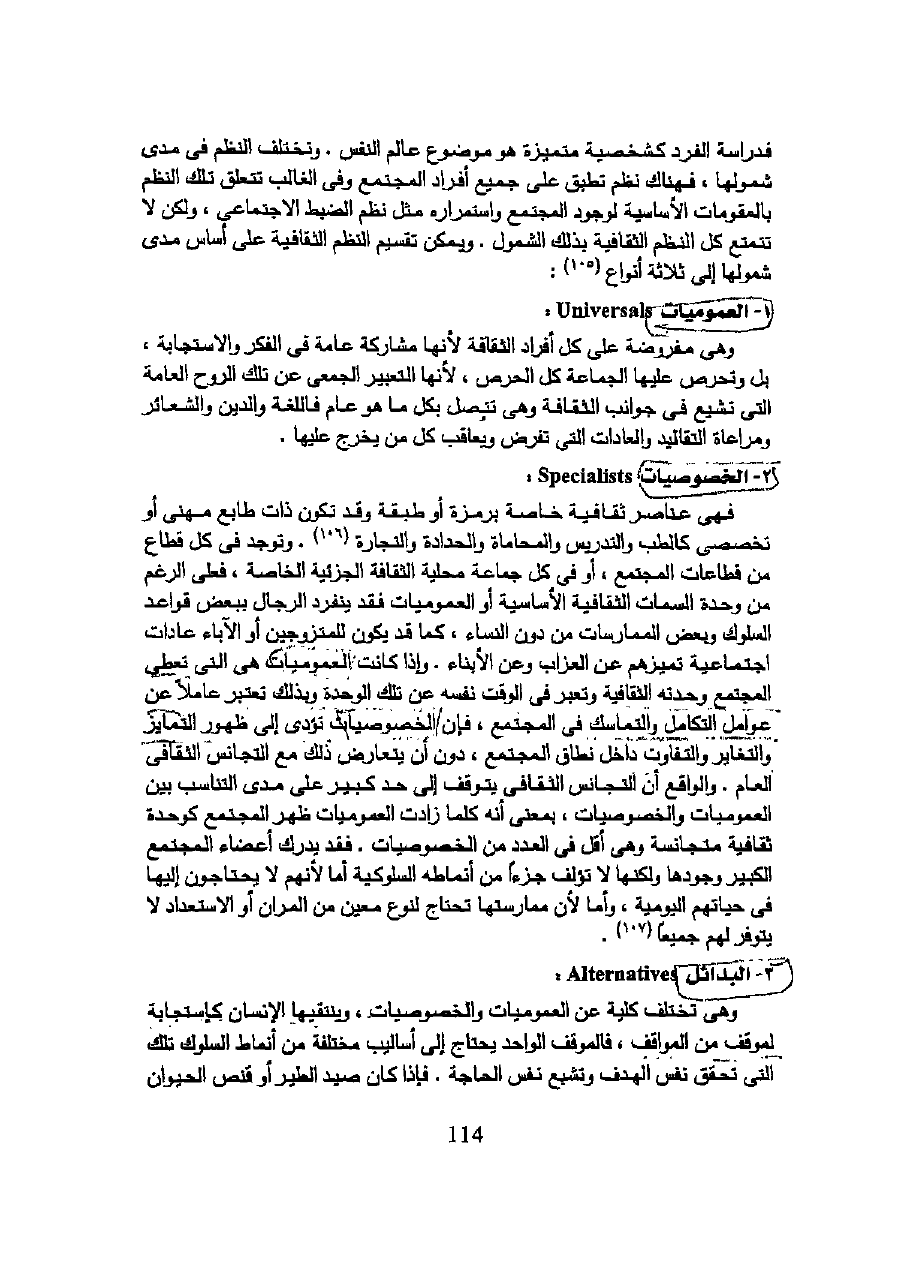 فدراسة الفرد كشخصية متميزة هو موضوع عالم النفس . وتختلف النظم فى مدى
شمولها ، فهناك نظم تطبق على جميع أفراد المجتمع وفى الغالب تتعلق تلك النظم
بالمقومات الأساسية لوجود المجتمع واستمراره مثل نظم الضبط الاجتماعي ، ولكن لا
تتمتع كل النظم الثقافية بذلك الشمول . ويمكن تقسيم النظم الثقافية على أساس مدى
شمولها إلى ثلاثة أنواع (١٠٥) :
١- العموميات Universals :
وهى مفروضة على كل أفراد الثقافة لأنها مشاركة عامة فى الفكر والاستجابة ،
بل وتحرص عليها الجماعة كل الحرص ، لأنها التعبير الجمعى عن تلك الروح العامة
التى تشيع فى جوانب الثقافة وهى تتصل بكل ما هو عام فاللغة والدين والشعائر
ومراعاة التقاليد والعادات التي تفرض ويعاقب كل من يخرج عليها .
٢- الخصوصيات Specialists :
فهى عناصر ثقافية خاصة برمزة أو طبقة وقد تكون ذات طابع مهنى أو
تخصصى كالطب والتدريس والمحاماة والحدادة والتجارة (١٠٦) . وتوجد فى كل قطاع
من قطاعات المجتمع ، أو فى كل جماعة محلية الثقافة الجزئية الخاصة ، فعلى الرغم
من وحدة السمات الثقافية الأساسية أو العموميات فقد ينفرد الرجال ببعض قواعد
السلوك وبعض الممارسات من دون النساء ، كما قد يكون للمتزوجين أو الآباء عادات
اجتماعية تميزهم عن العزاب وعن الأبناء . وإذا كانت العموميات هى التى تعطى
المجتمع وحدته الثقافية وتعبر فى الوقت نفسه عن تلك الوحدة وبذلك تعتبر عاملاً عن
عوامل التكامل والتماسك فى المجتمع ، فإن الخصوصيات تؤدى إلى ظهور التمايز
والتغاير والتفاوت داخل نطاق المجتمع ، دون أن يتعارض ذلك مع التجانس الثقافى
العام . والواقع أن التجانس الثقافى يتوقف إلى حد كبير على مدى التناسب بين
العموميات والخصوصيات ، بمعنى أنه كلما زادت العموميات ظهر المجتمع كوحدة
ثقافية متجانسة وهى أقل فى العدد من الخصوصيات . فقد يدرك أعضاء المجتمع
الكبير وجودها ولكنها لا تؤلف جزءاً من أنماطه السلوكية أما لأنهم لا يحتاجون إليها
فى حياتهم اليومية ، وأما لأن ممارستها تحتاج لنوع معين من المران أو الاستعداد لا
يتوفر لهم جميعاً (١٠٧) .
٣- البدائل Alternatives :
وهى تختلف كلية عن العموميات والخصوصيات ، وينتقيها الإنسان كإستجابة
لموقف من المواقف ، فالموقف الواحد يحتاج إلى أساليب مختلفة من أنماط السلوك تلك
التى تحقق نفس الهدف وتشبع نفس الحاجة . فإذا كان صيد الطير أو قنص الحيوان
114